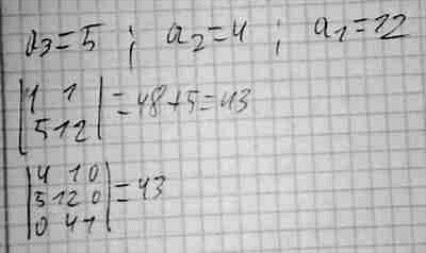 a₃=5 ; a₂=4 ; a₁=12
|4 1|
|5 12| =48+5=43
|4 1 0|
|5 12 0| =43
|0 4 1|